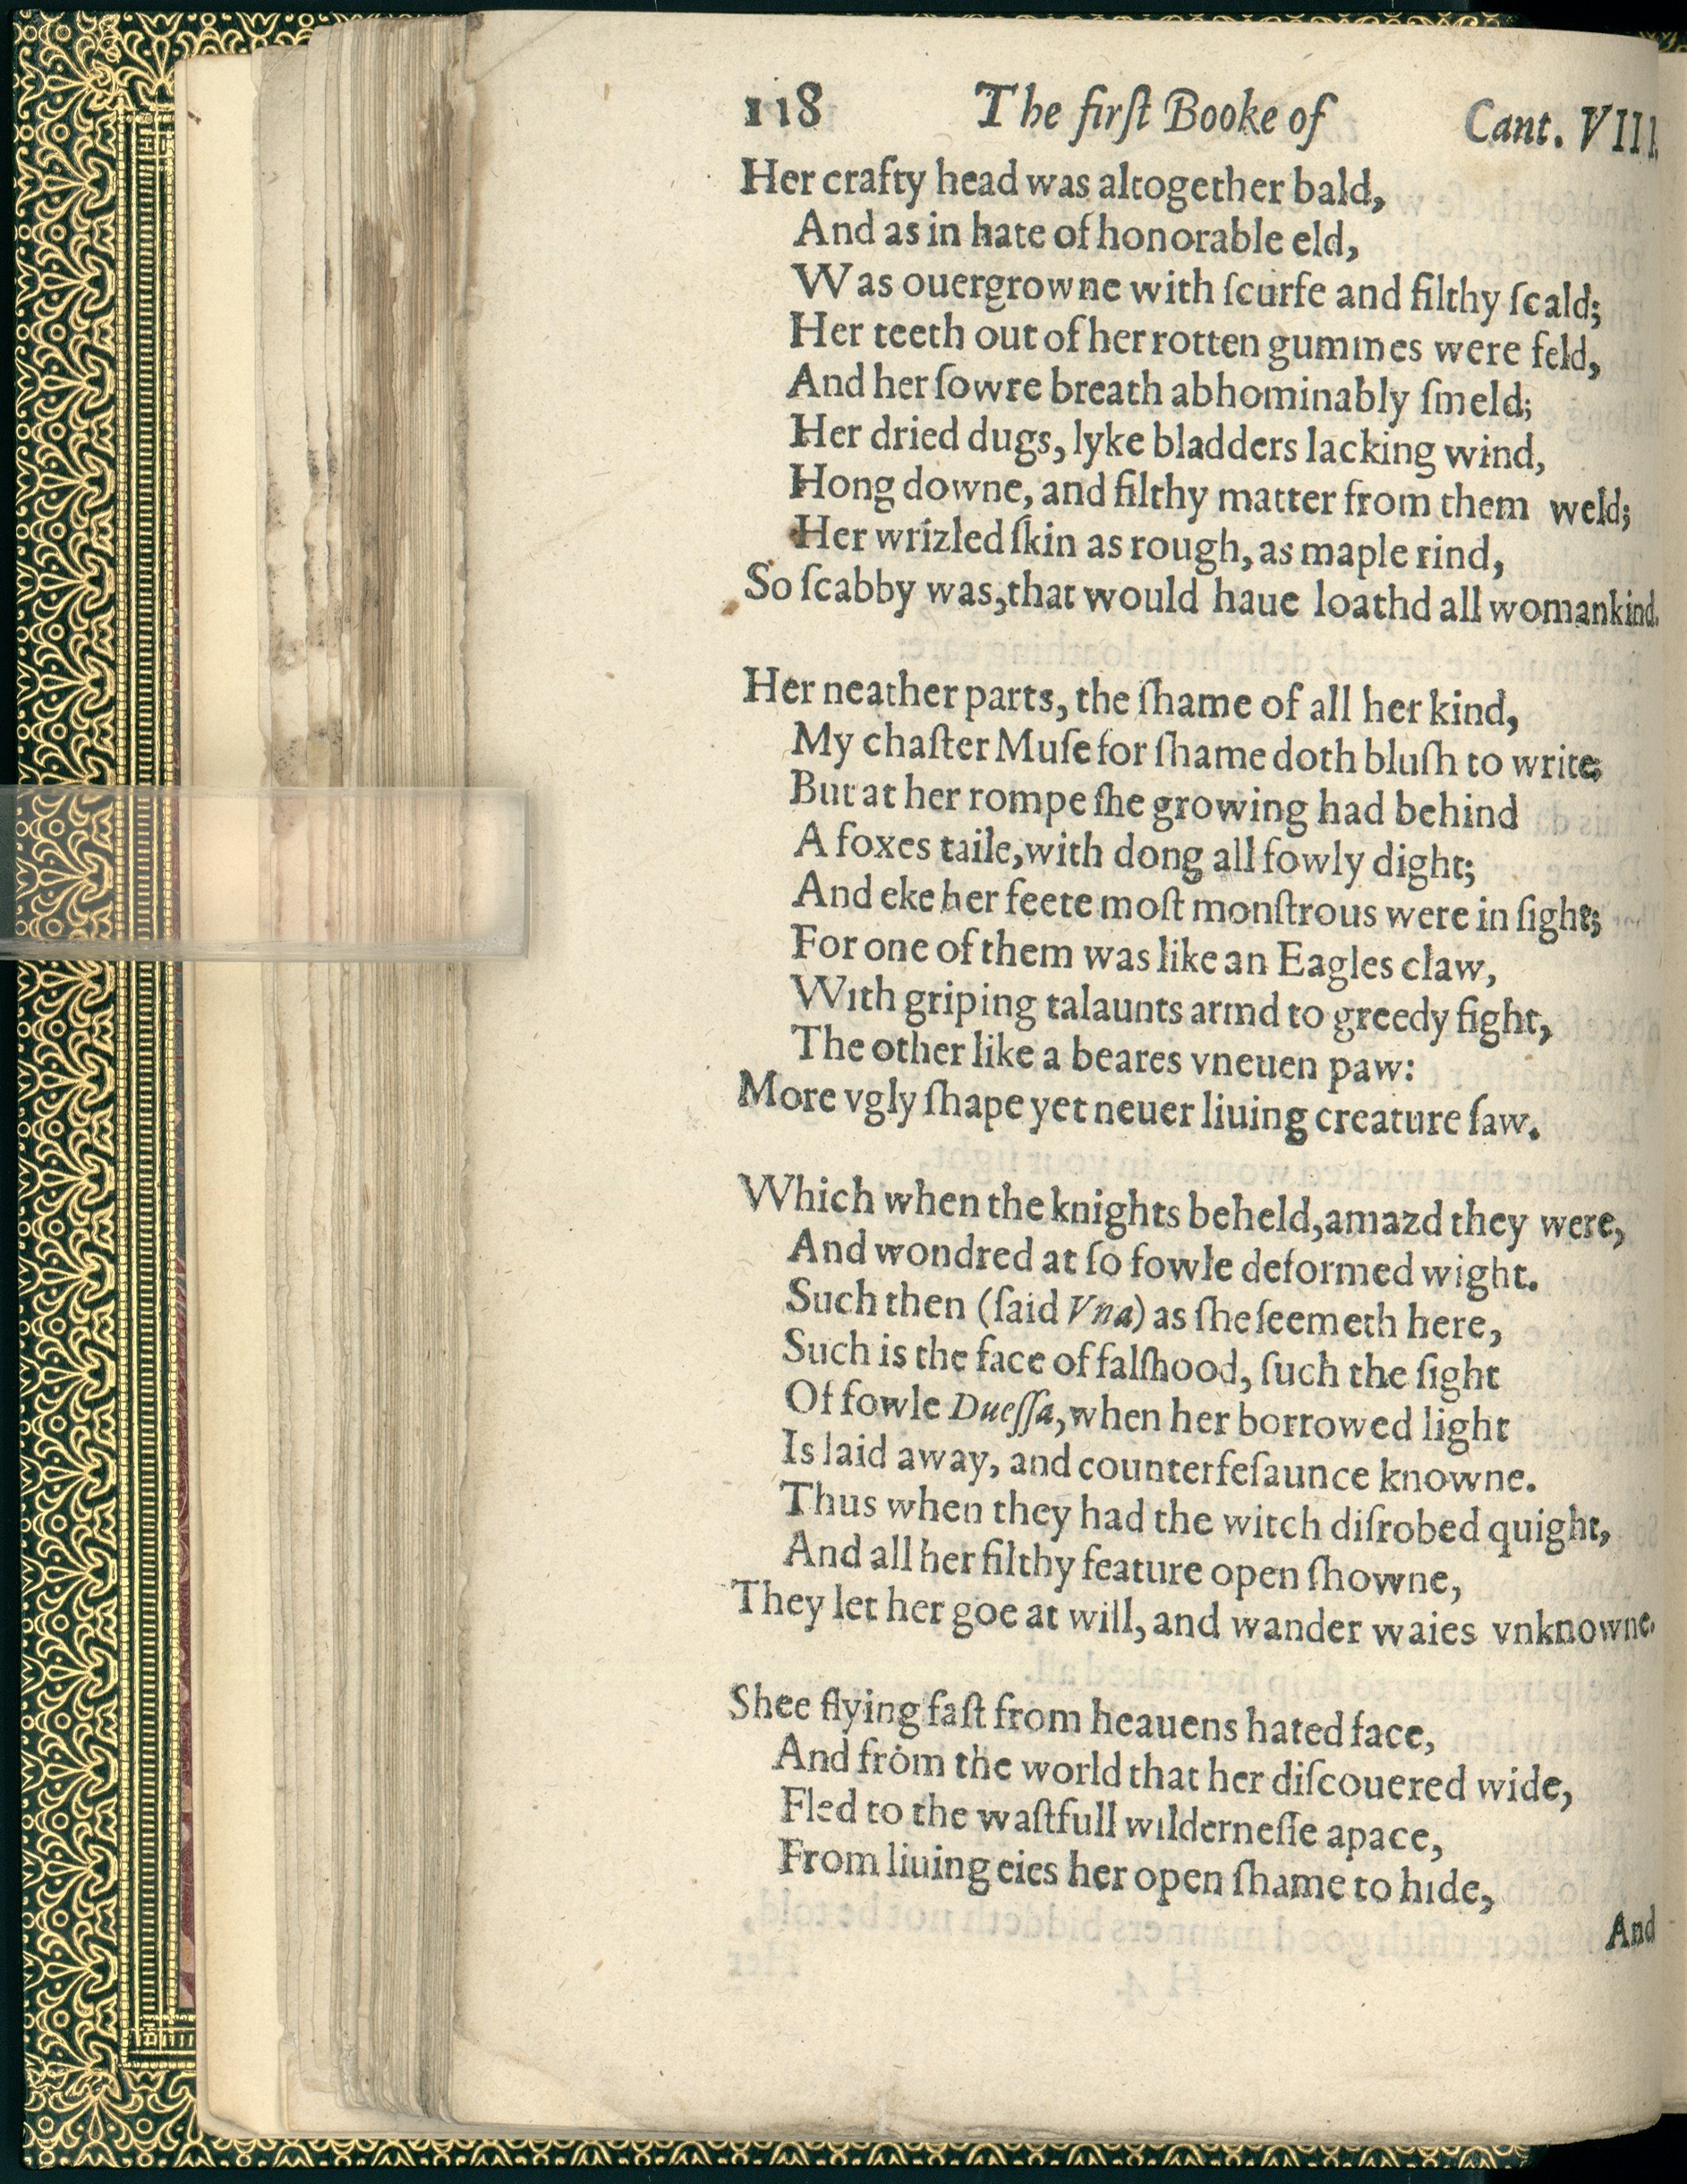 118 The firſt Booke of Cant. VIII.
Her crafty head was altogether bald,
And as in hate of honorable eld,
Was ouergrowne with ſcurfe and filthy ſcald;
Her teeth out of her rotten gummes were feld,
And her ſowre breath abhominably ſmeld;
Her dried dugs, lyke bladders lacking wind,
Hong downe, and filthy matter from them weld;
Her wrizled ſkin as rough, as maple rind,
So ſcabby was, that would haue loathd all womankind.
Her neather parts, the ſhame of all her kind,
My chaſter Muſe for ſhame doth bluſh to write;
But at her rompe ſhe growing had behind
A foxes taile, with dong all fowly dight;
And eke her feete moſt monſtrous were in ſight;
For one of them was like an Eagles claw,
With griping talaunts armd to greedy fight,
The other like a beares vneuen paw:
More vgly ſhape yet neuer liuing creature ſaw.
Which when the knights beheld, amazd they were,
And wondred at ſo fowle deformed wight.
Such then (ſaid Vna) as ſhe ſeemeth here,
Such is the face of falſhood, ſuch the ſight
Of fowle Dueſſa, when her borrowed light
Is laid away, and counterfeſaunce knowne.
Thus when they had the witch diſrobed quight,
And all her filthy feature open ſhowne,
They let her goe at will, and wander waies vnknowne.
Shee flying faſt from heauens hated face,
And from the world that her diſcouered wide,
Fled to the waſtfull wilderneſſe apace,
From liuing eies her open ſhame to hide,
And